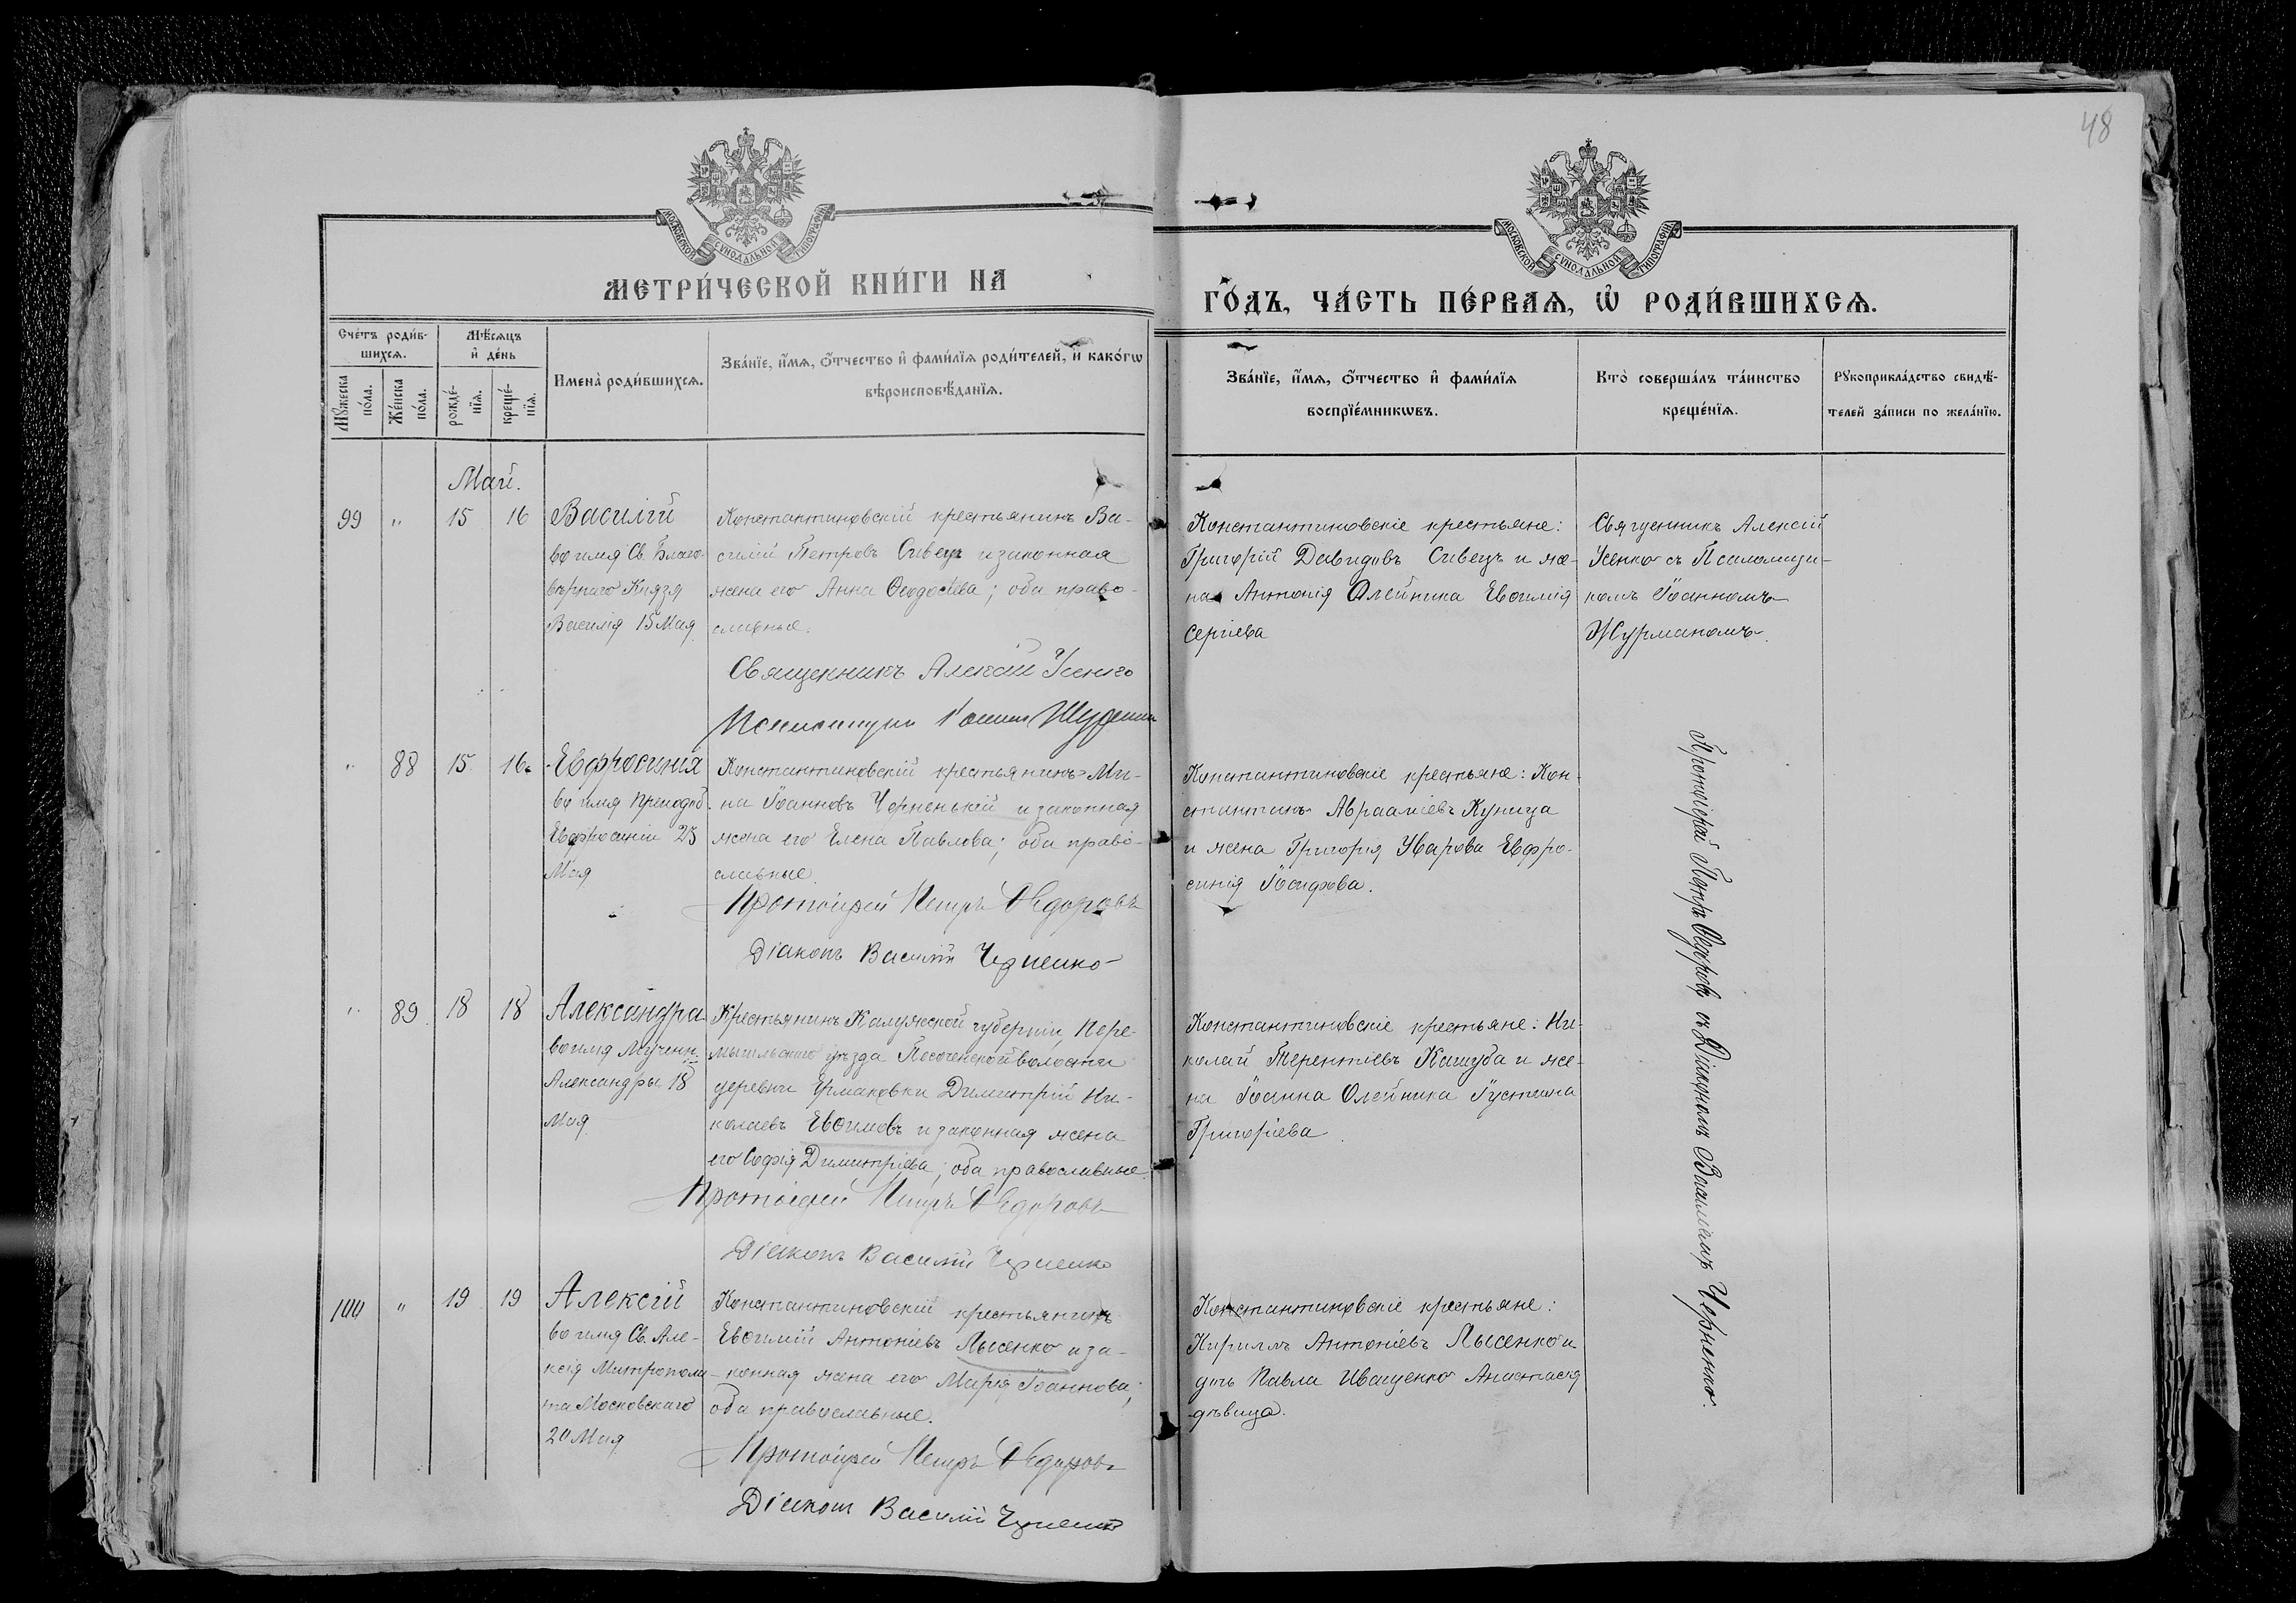 48
МОСКОВСКОЙ СѴНОДАЛЬНОЙ ТИПОГРАФІИ
МОСКОВСКОЙ СѴНОДАЛЬНОЙ ТИПОГРАФІИ
МЕТРИ́ЧЕСКОЙ КНИ́ГИ НА
ГО́ДЪ, ЧА́СТЬ ПЕ́РВАѦ, Ѡ҆ РОДИ́ВШИХСѦ.
Сче́тъ роди́в-
шихсѧ.
Мѣ́сѧцъ
и҆ де́нь
Мꙋ́жеска
по́ла.
Же́нска
по́ла.
рожде́-
нїѧ.
креще́-
нїѧ.
Имена̀ роди́вшихсѧ.
Зва́нїе, и҆́мѧ, ѻ҆́тчество и҆ фами́лїѧ роди́телей, и҆ како́гѡ
вѣроисповѣ́данїѧ.
Зва́нїе, и҆́мѧ, ѻ҆́тчество и҆ фами́лїѧ
воспрїе́мникѡвъ.
Кто̀ соверша́лъ та́инство
креще́нїѧ.
Рꙋкоприкла́дство свидѣ́-
телей за́писи по жела́нїю.
Май.
99 " 15 16
Василій
во имя Св. Благо-
вѣрнаго Князя
Василія 15 Мая
Константиновскій крестьянинъ Ва-
силій Петровъ Сивецъ и законная
жена его Анна Ѳеодосіева; оба право-
славные.
Священникъ Алексій Усенко
Псаломщикъ Іоаннъ Журманъ
Константиновскіе крестьяне:
Григорій Давидовъ Сивецъ и же-
на Антонія Олейника Евѳимія
Сергіева
Священникъ Алексій
Усенко съ Псаломщи-
комъ Іоанномъ
Журманомъ.
" 88 15 16
Евфросинія
во имя Преподоб.
Евфросиніи 23
Мая
Константиновскій крестьянинъ Ми-
на Іоанновъ Черненькій и законная
жена его Елена Павлова; оба право-
славные.
Протоіерей Петръ Ѳедоровъ
Діаконъ Василій Черненко
Константиновскіе крестьяне: Кон-
стантинъ Авраамiевъ Куница
и жена Григорія Уварова Евфро-
синія Іосифова.
Протоіерей Петръ Ѳедоровъ съ Діакономъ Василіемъ Черненко.
" 89 18 18
Александра
во имя Мучениц.
Александры 18
Мая
Крестьянинъ Калужской губерніи, Пере-
мышльскаго уѣзда Песоченской волости
деревни Ермаковки Димитрій Ни-
колаевъ Евѳимовъ и законная жена
его Софія Димитріева; оба православные.
Протоіерей Петръ Ѳедоровъ
Діаконъ Василій Черненко
Константиновскіе крестьяне: Ни-
колай Терентіевъ Кашуба и же-
на Іоанна Олейника Іустина
Григоріева
100 " 19 19
Алексій
во имя Св. Але-
ксія Митрополи-
та Московскаго
20 Мая
Константиновскій крестьянинъ
Евѳимій Антоніевъ Лысенко и за-
конная жена его Марія Іоаннова;
оба православные.
Протоіерей Петръ Ѳедоровъ
Діаконъ Василій Черненко
Константиновскіе крестьяне:
Кириллъ Антоніевъ Лысенко и
дочь Павла Иващенко Анастасія
дѣвица.